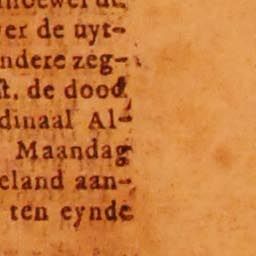 er de uyt-
ndere zeg-
st, de dood
dinaal Al-
Maandag
eland aan-
ten eynde